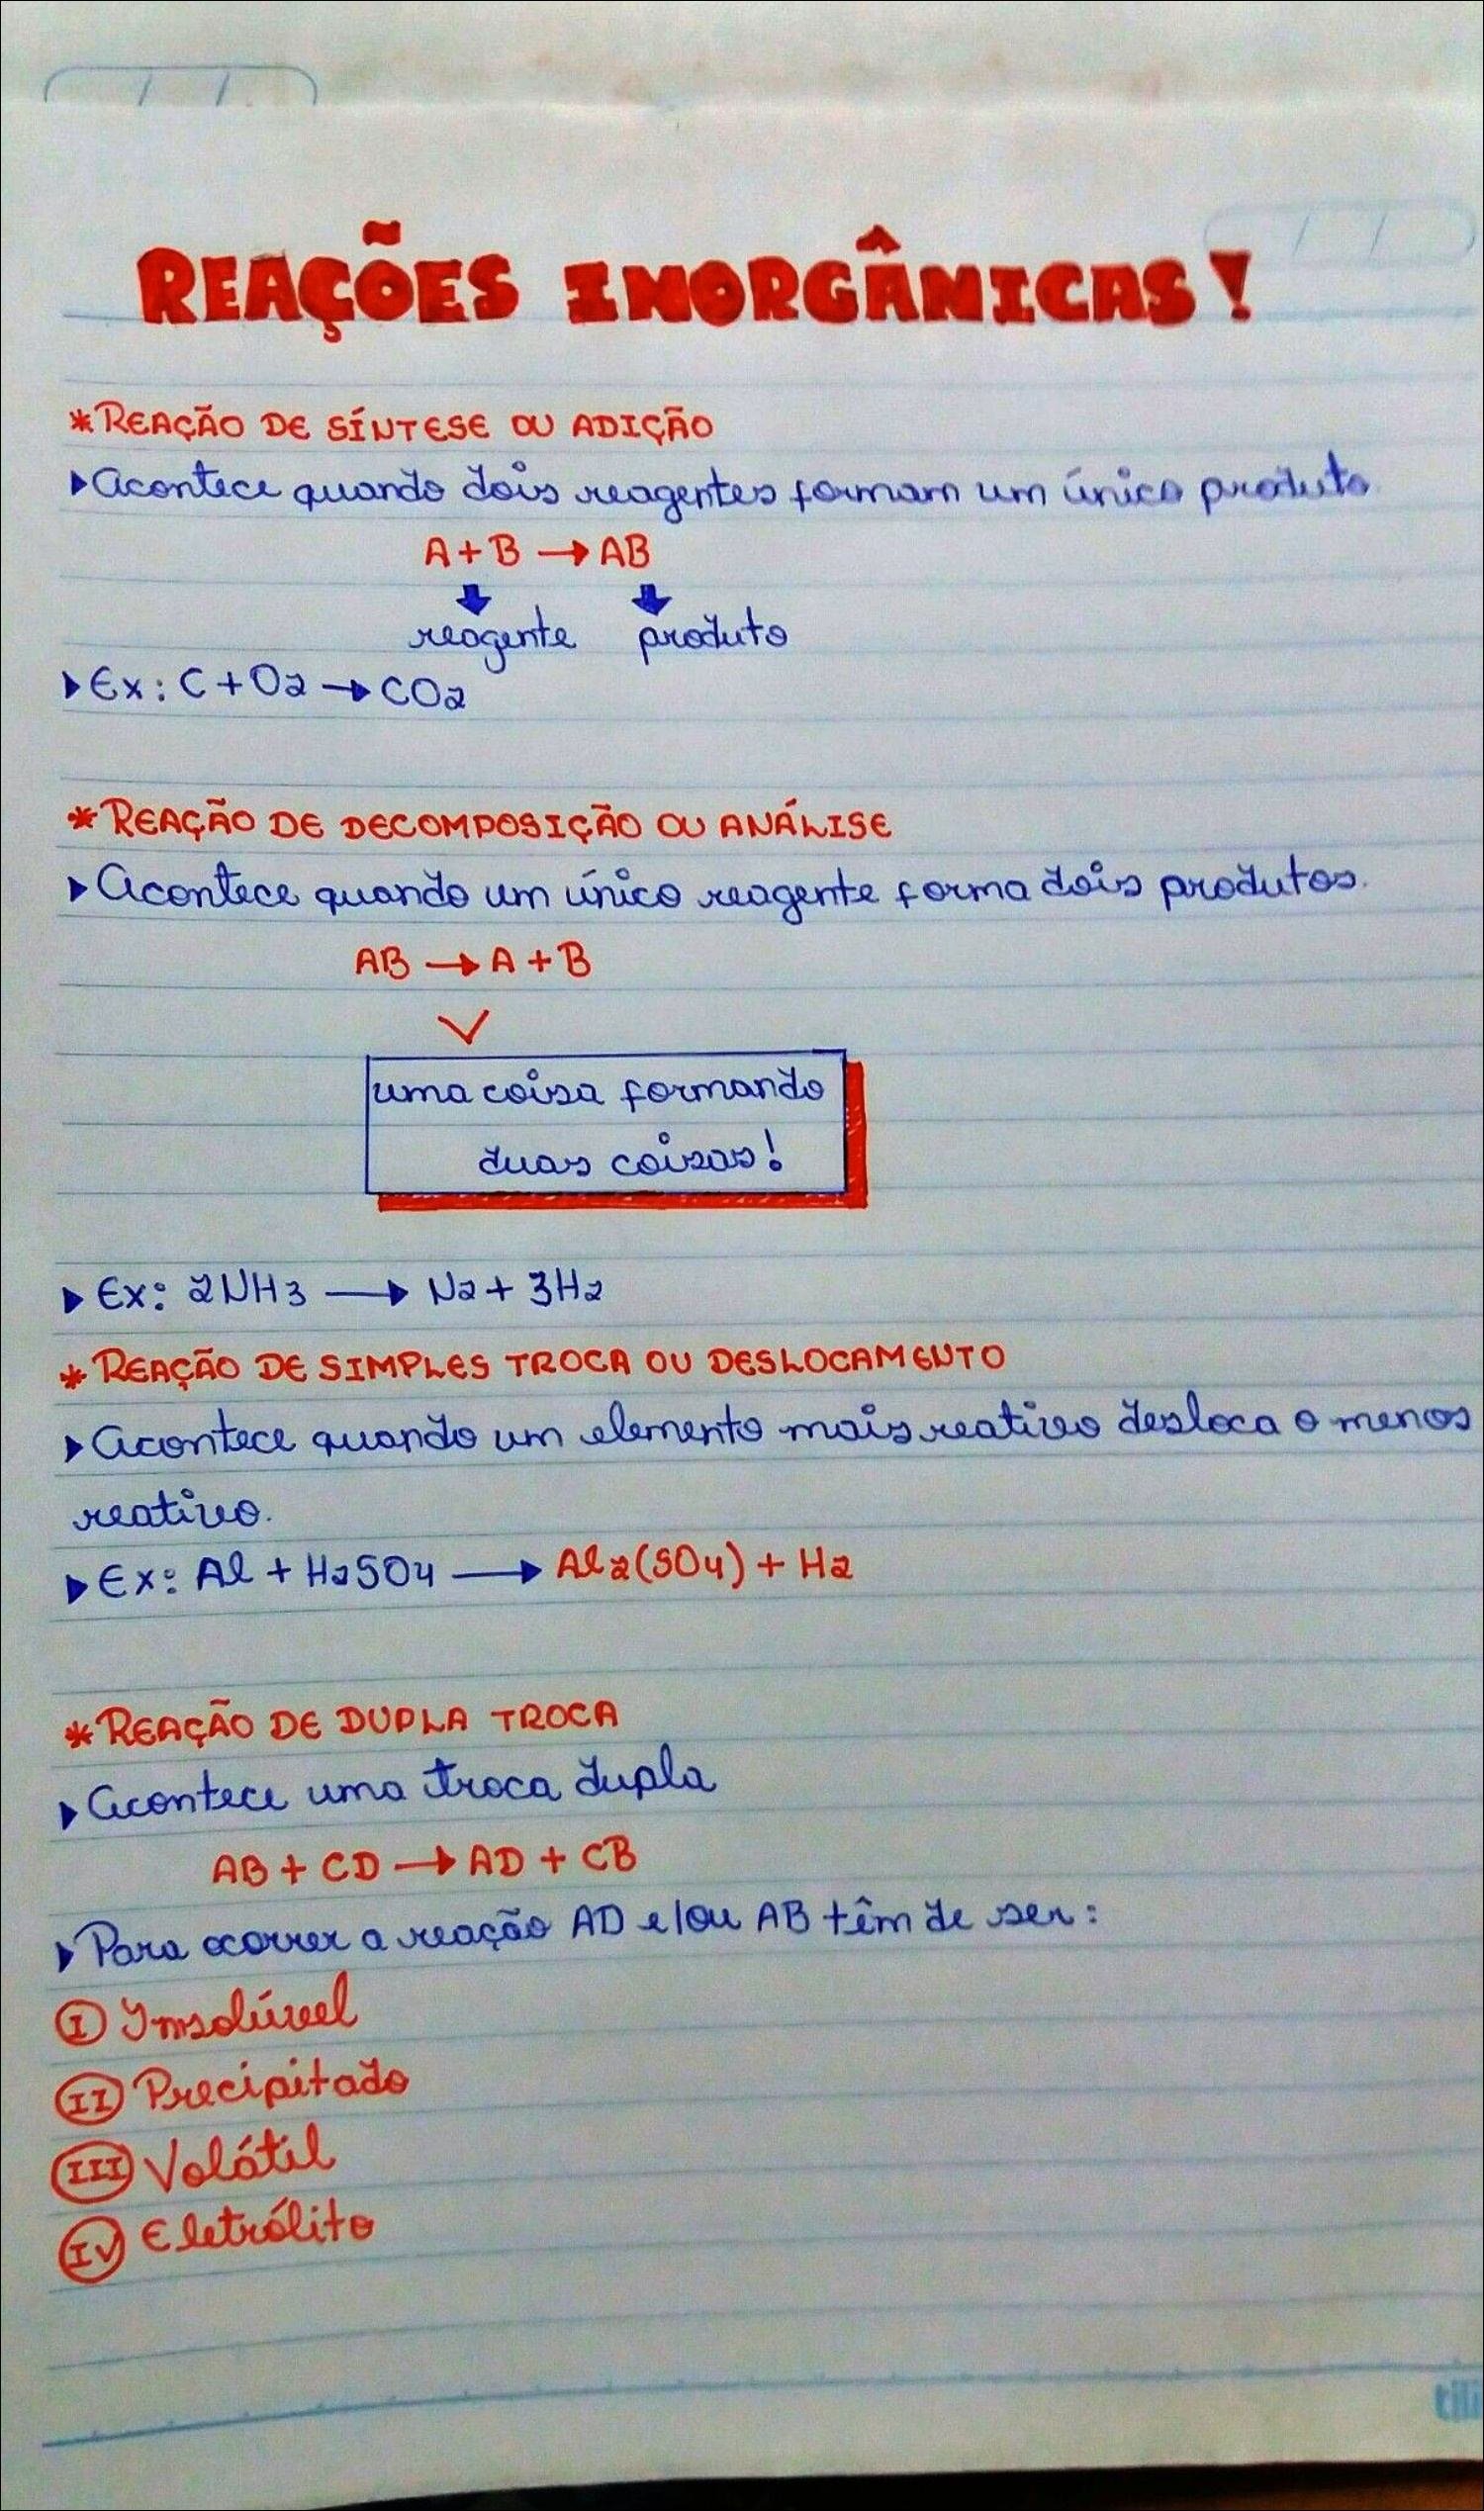 REAÇÕES INORGÂNICAS!
*REAÇÃO DE SÍNTESE OU ADIÇÃO
▸Acontece quando dois reagentes formam um único produto
A+B → AB
reagente produto
▸Ex: C+O2 → CO2
*REAÇÃO DE DECOMPOSIÇÃO OU ANÁLISE
▸Acontece quando um único reagente forma dois produtos.
AB → A+B
uma coisa formando
duas coisas!
▸Ex: 2NH3 → N2+ 3H2
*REAÇÃO DE SIMPLES TROCA OU DESLOCAMENTO
▸Acontece quando um elemento mais reativo desloca o menos
reativo.
▸Ex: Al + H2SO4 → Al2(SO4) + H2
*REAÇÃO DE DUPLA TROCA
▸Acontece uma troca dupla
AB + CD → AD + CB
▸Para ocorrer a reação AD e/ou AB têm de ser:
I Insolúvel
II Precipitado
III Volátil
IV Eletrólito
tili